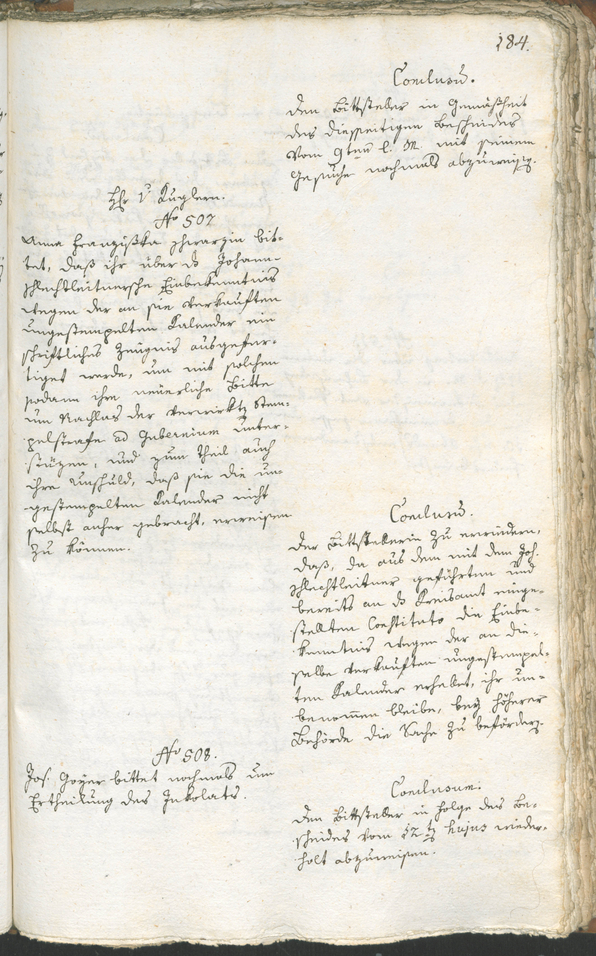 184.
Conclusum.
Den Bittsteller in Gemäßheit
des diesseitigen Bescheides
vom 9ten l. M. mit seinem
Gesuche nochmals abzuweisen.
Hr v. Kuglern.
No 507
Anna Franziska Schwarzin bit-
tet, daß ihr über das Johann
Schlechtleitnersche Einbekenntnis
wegen der an sie verkauften
ungestempelten Kalender ein
schriftliches Zeugnis ausgefer-
tiget werde, um mit solchen
sodann ihre neuerliche Bitte
um Nachlas der verwirkten Stem-
pelstrafe ad Gubernium unter-
stüzen, und zum Theil auch
ihre Unschuld, daß sie die un-
gestempelten Kalender nicht
selbst anher gebracht, erweisen
zu können.
Conclusum.
Der Bittstellerin zu erwiedern,
daß, da aus dem mit dem Joh.
Schlechtleitner geführten und
bereits an das Kreisamt einge-
stellten Constituto die Einbe-
kenntnis wegen der an die-
selbe verkauften ungestempel-
ten Kalender erhebet, ihr un-
benommen bleibe, bey höherer
Behörde die Sache zu befördern.
No 508.
Jos. Goyer bittet nochmals um
Ertheilung des Inkolats.
Conclusum.
Den Bittsteller in Folge des Be-
scheides vom 12ten hujus wieder-
holt abzuweisen.